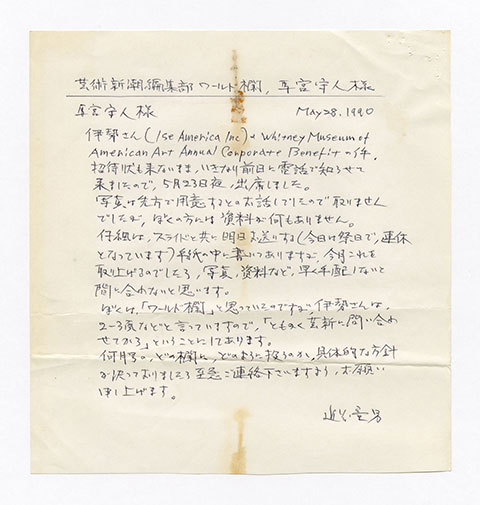 芸術新潮編集部 ワールド欄, 耳宮守人様
耳宮守人様 May 28, 1990
伊勢さん (Ise America Inc) の Whitney Museum of
American Art Annual Corporate Benefit の件.
招待状も来ないまま, いきなり前日に電話で知らせて
来ましたので, 5月23日夜, 出席しました。
写真は先方で用意するとのお話でしたので取りません
でしたが, ぼくの方には資料が何もありません。
仔細は, スライドと共に明日お送りする (今日は祭日で, 連休
となっています) 手紙の中に書いてありますが, 今月これを
取上げるのでしたら, 写真, 資料など, 早く手配しないと
間に合わないと思います。
ぼくは,「ワールド欄」と思っていたのですが, 伊勢さんは,
2〜3頁などと言っていますので,「ともかく芸新に問い合わ
せてみる」ということにしてあります。
何月号の, どの欄に, どのように扱うのか, 具体的な方針
が決っておりましたら至急ご連絡下さいますよう, お願い
申し上げます。